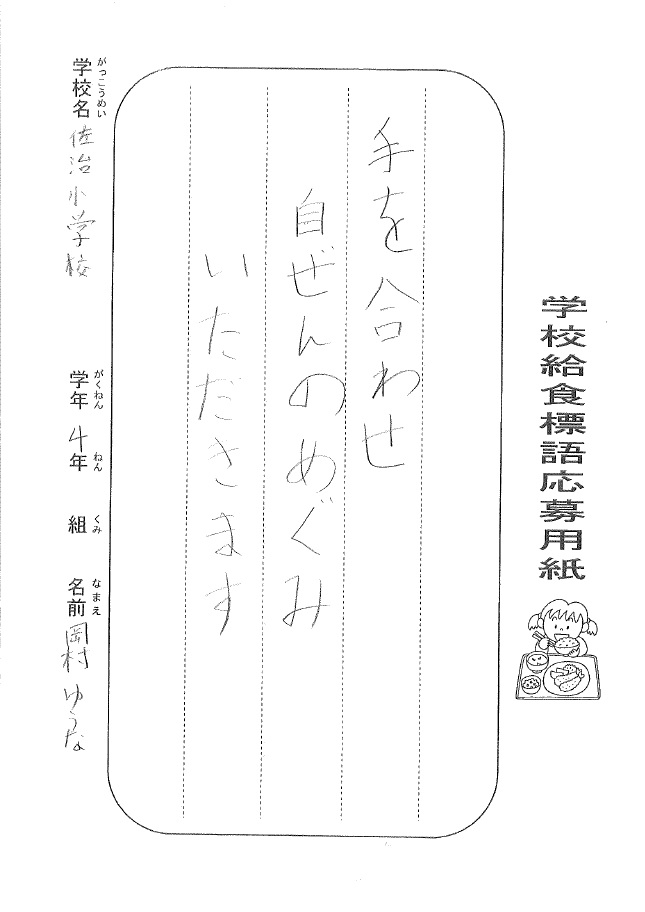 学校給食標語応募用紙
手を合わせ
自ぜんのめぐみ
いただきます
がっこうめい
学校名 佐治小学校
がくねん ねん くみ なまえ
学年 4年 組 名前 岡村ゆうな